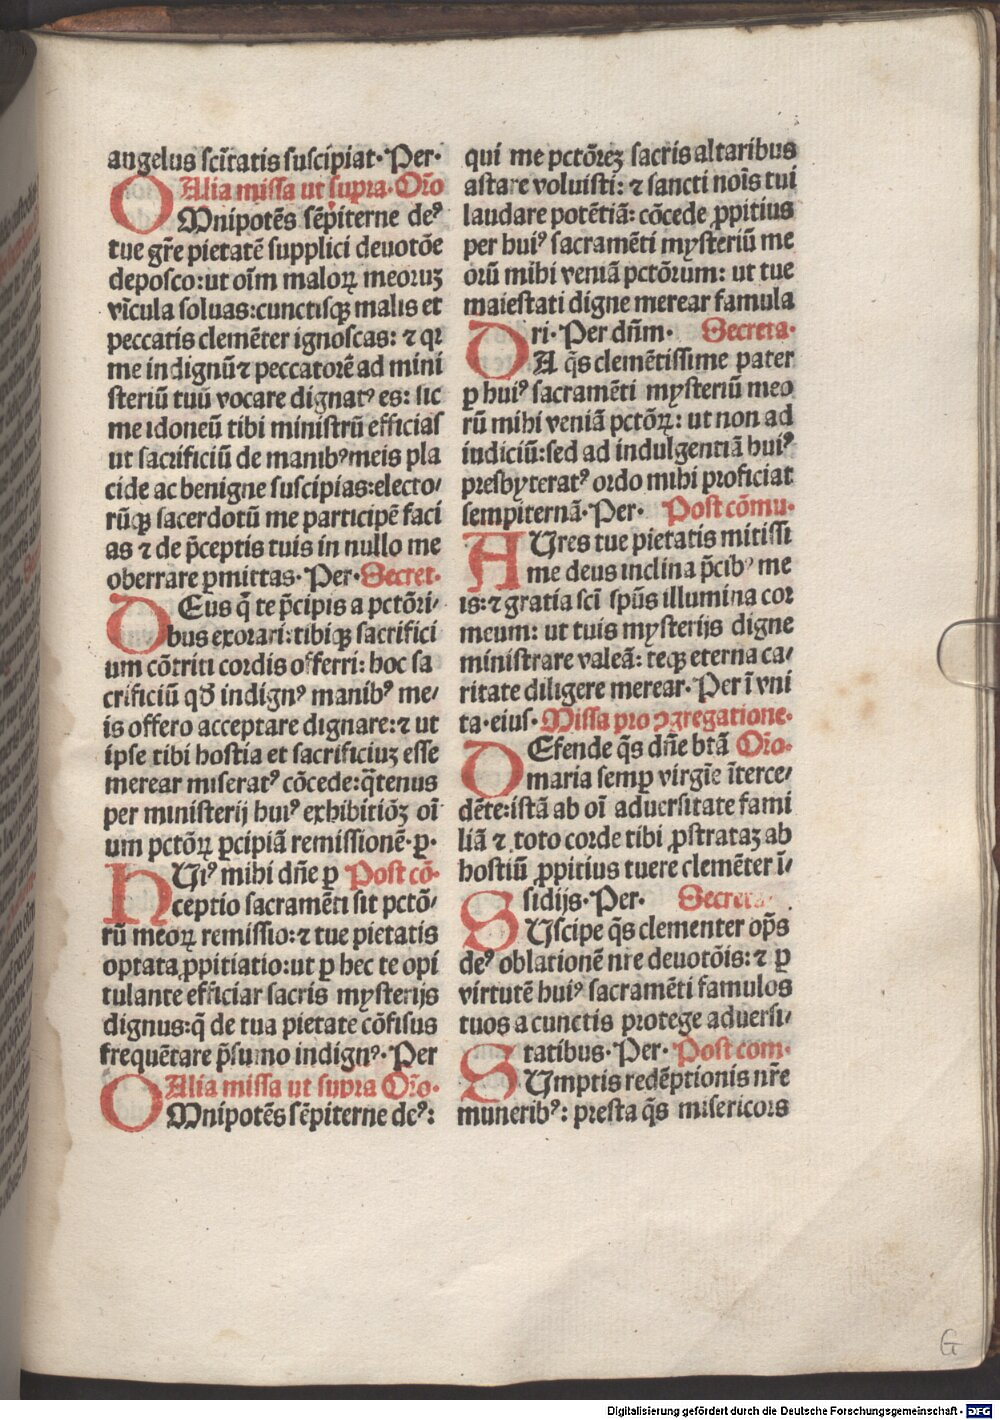 angelus scītatis suscipiat·Per·
Alia missa ut supra·Oŕo
OMnipotēs sēpiterne deꝰ
tue gr̄e pietatē supplici deuotōe
deposco:ut oīm maloꝝ meoruꝫ
vīcula soluas:cunctisqꝫ malis et
peccatis clemēter ignoscas: ⁊ qr
me indignū⁊ peccatorē ad mini
steriū tuū vocare dignatꝰ es: sic
me idoneū tibi ministrū efficias
ut sacrificiū de manibꝰmeis pla
cide ac benigne suscipias:electo/
rūqꝫ sacerdotū me participē faci
as ⁊ de p̄ceptis tuis in nullo me
oberrare ꝑmittas·Per·Secret·
DEus q̄ te p̄cipis a pctōri/
bus exorari:tibiqꝫ sacrifici
um cōtriti cordis offerri: hoc sa
crificiū qđ indignꝰ manibꝰ me/
is offero acceptare dignare:⁊ ut
ipse tibi hostia et sacrificiuꝫ esse
merear miseratꝰ cōcede:q̄tenus
per ministerij huiꝰ exhibitiōꝫ oī
um pctōꝝ ꝑcipiā remissionē·p·
HUiꝰ mihi dn̄e ꝑ Post cō·
ceptio sacramēti sit pctō/
rū meoꝝ remissio:⁊ tue pietatis
optata ꝓpitiatio:ut ꝑ hec te opi
tulante efficiar sacris mysterijs
dignus:q̄ de tua pietate cōfisus
frequētare p̄sumo indignꝰ·Per
Alia missa ut supra Oŕo·
OMnipotēs sēpiterne deꝰ:
qui me pctōreꝫ sacris altaribus
astare voluisti: ⁊ sancti noīs tui
laudare potētiā: cōcede ꝓpitius
per huiꝰ sacramēti mysteriū me
orū mihi veniā pctōrum: ut tue
maiestati digne merear famula
ri·Per dn̄m· Secreta·
DA q̄s clemētissime pater
ꝑ huiꝰ sacramēti mysteriū meo
rū mihi veniā pctōꝝ: ut non ad
iudiciū:sed ad indulgentiā huiꝰ
presbyteratꝰ ordo mihi proficiat
sempiternā·Per· Post cōmu·
AUres tue pietatis mitissi
me deus inclina p̄cibꝰ me
is:⁊ gratia sci̅ spūs illumina cor
meum: ut tuis mysterijs digne
ministrare valeā: teqꝫ eterna ca/
ritate diligere merear·Per ī vni
ta·eius·Missa pro ꝯgregatione·
DEfende q̄s dn̄e btā Oŕo·
maria semꝑ virgīe īterce/
dēte:istā ab oī aduersitate fami
liā ⁊ toto corde tibi ꝓstrataꝫ ab
hostiū ꝓpitius tuere clemēter ī/
sidijs·Per· Secreta·
SUscipe q̄s clementer op̄s
deꝰ oblationē nr̄e deuotōis:⁊ ꝑ
virtutē huiꝰ sacramēti famulos
tuos a cunctis protege aduersi/
tatibus·Per·Post com·
SUmptis redēptionis nr̄e
muneribꝰ: presta q̄s misericors
G
Digitalisierung gefördert durch die Deutsche Forschungsgemeinschaft - DFG